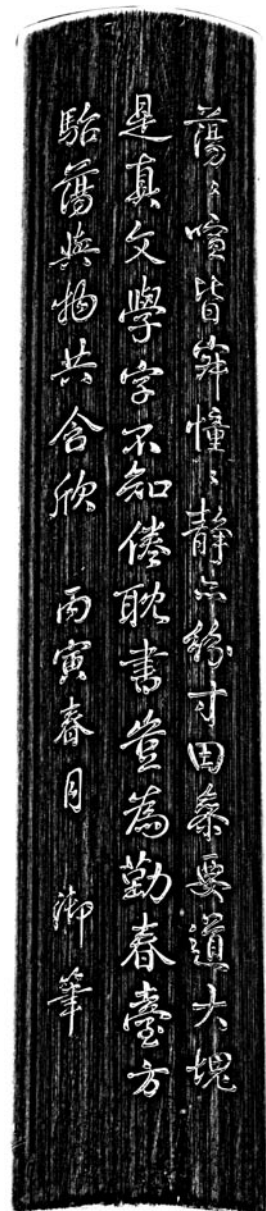 蕩〻喧皆寂憧〻靜亦紛寸田叅要道大塊
是真文學字不知倦耽書豈為勤春臺方
駘蕩與物共含欣 丙寅春月 御筆